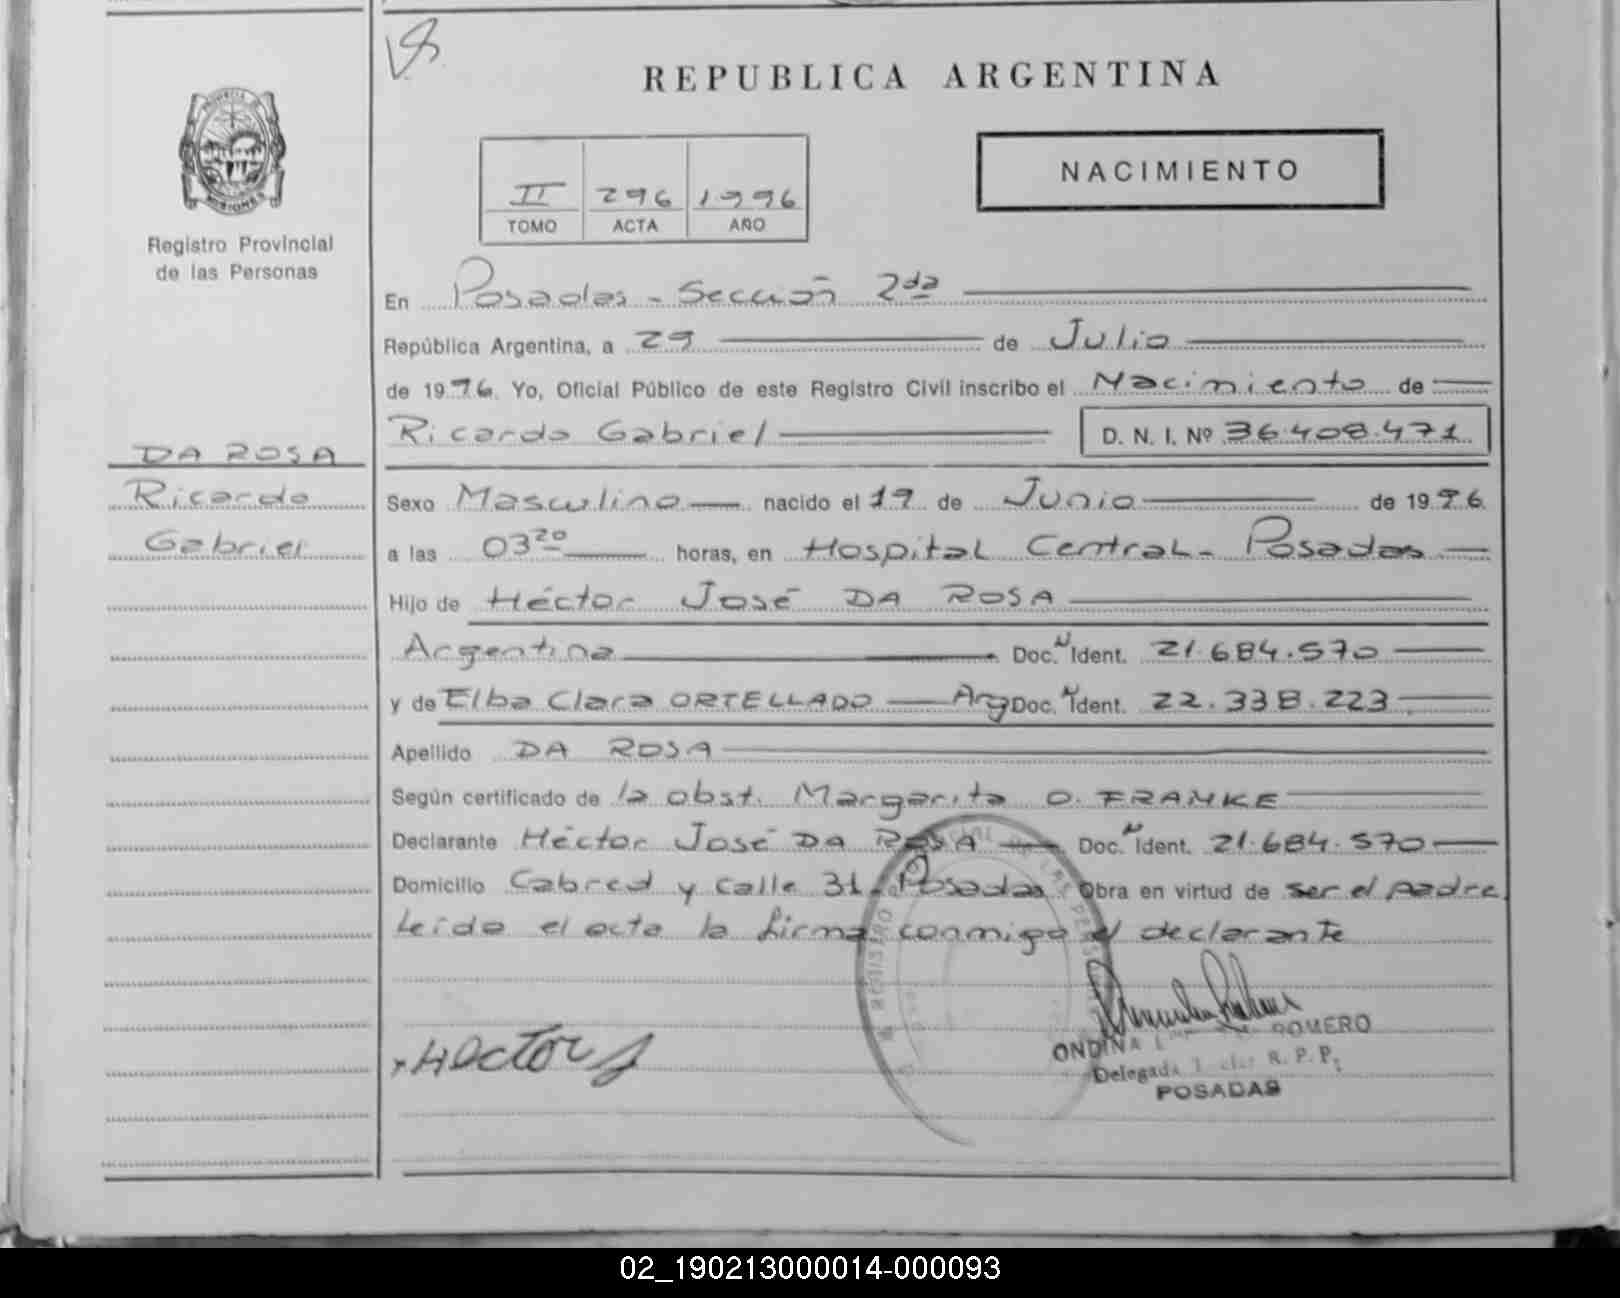 REPUBLICA ARGENTINA
PROVINCIA DE
MISIONES
Registro Provincial
de las Personas
II 296 1996
TOMO ACTA AÑO
NACIMIENTO
En Posadas - Sección 2da
República Argentina, a 29 de Julio
de 1996. Yo, Oficial Público de este Registro Civil inscribo el Nacimiento de
Ricardo Gabriel D. N. I. Nº 36.408.471
DA ROSA
Ricardo
Gabriel
Sexo Masculino nacido el 19 de Junio de 1996
a las 03 20 horas, en Hospital Central - Posadas
Hijo de Héctor José DA ROSA
Argentina Doc. N Ident. 21.684.570
y de Elba Clara ORTELLADO Arg Doc. N Ident. 22.338.223
Apellido DA ROSA
Según certificado de la obst. Margarita O. FRANKE
Declarante Héctor José DA ROSA Doc. N Ident. 21.684.570
Domicilio Cabred y calle 31 - Posadas Obra en virtud de ser el padre
Leída el acta la firma conmigo el declarante
Hector J
ONDINA ROMERO
Delegada R. P. P.
POSADAS
02_190213000014-000093